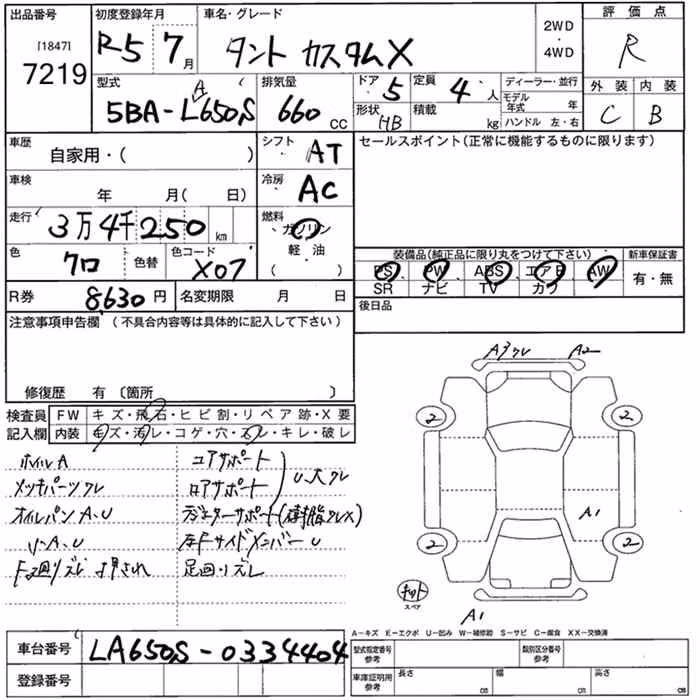 出品番号 初度登録年月 車名・グレード 評価点
[1847]
7219 R5 7月 タント カスタムX 2WD ・ 4WD R
型式 排気量 ドア 5 定員 4人 ディーラー・並行 外装 内装
5BA-LA650S 660cc 形状 HB 積載 kg モデル年式 年 C B
ハンドル 左・右
車歴 自家用・( ) シフト AT セールスポイント(正常に機能するものに限ります)
車検 年 月( 日) 冷房 AC
走行 3万4千250km 燃料 ガソリン
軽・油
( )
色 クロ 色替 色コード X07 装備品(純正品に限り丸をつけて下さい) 新車保証書
PS PW ABS エアB AW 有・無
SR ナビ TV カワ
R券 8630円 名変期限 月 日 後日品
注意事項申告欄 (不具合内容等は具体的に記入して下さい)
修復歴 有 〔箇所 〕
検査員 FW キズ・飛石・ヒビ割・リペア跡・X要
記入欄 内装 キズ・汚レ・コゲ・穴・スレ・キレ・破レ
A3クレ A2
2 2
ホイルA コアサポート
メッキパーツクレ ロアサポート U、大クレ
オイルパンA、U ラジエターサポート(樹脂クレX)
リ-A、U 左Fサイドメンバー U
足廻リズレ
A1
2 2
キット
スペア
A1
A-キズ E-エクボ U-凹み W-補修跡 S-サビ C-腐食 XX-交換済
車台番号 LA650S-0334404 型式指定番号 参考 類別区分番号 参考
登録番号 車庫証明用 参考 長さ cm 幅 cm 高さ cm